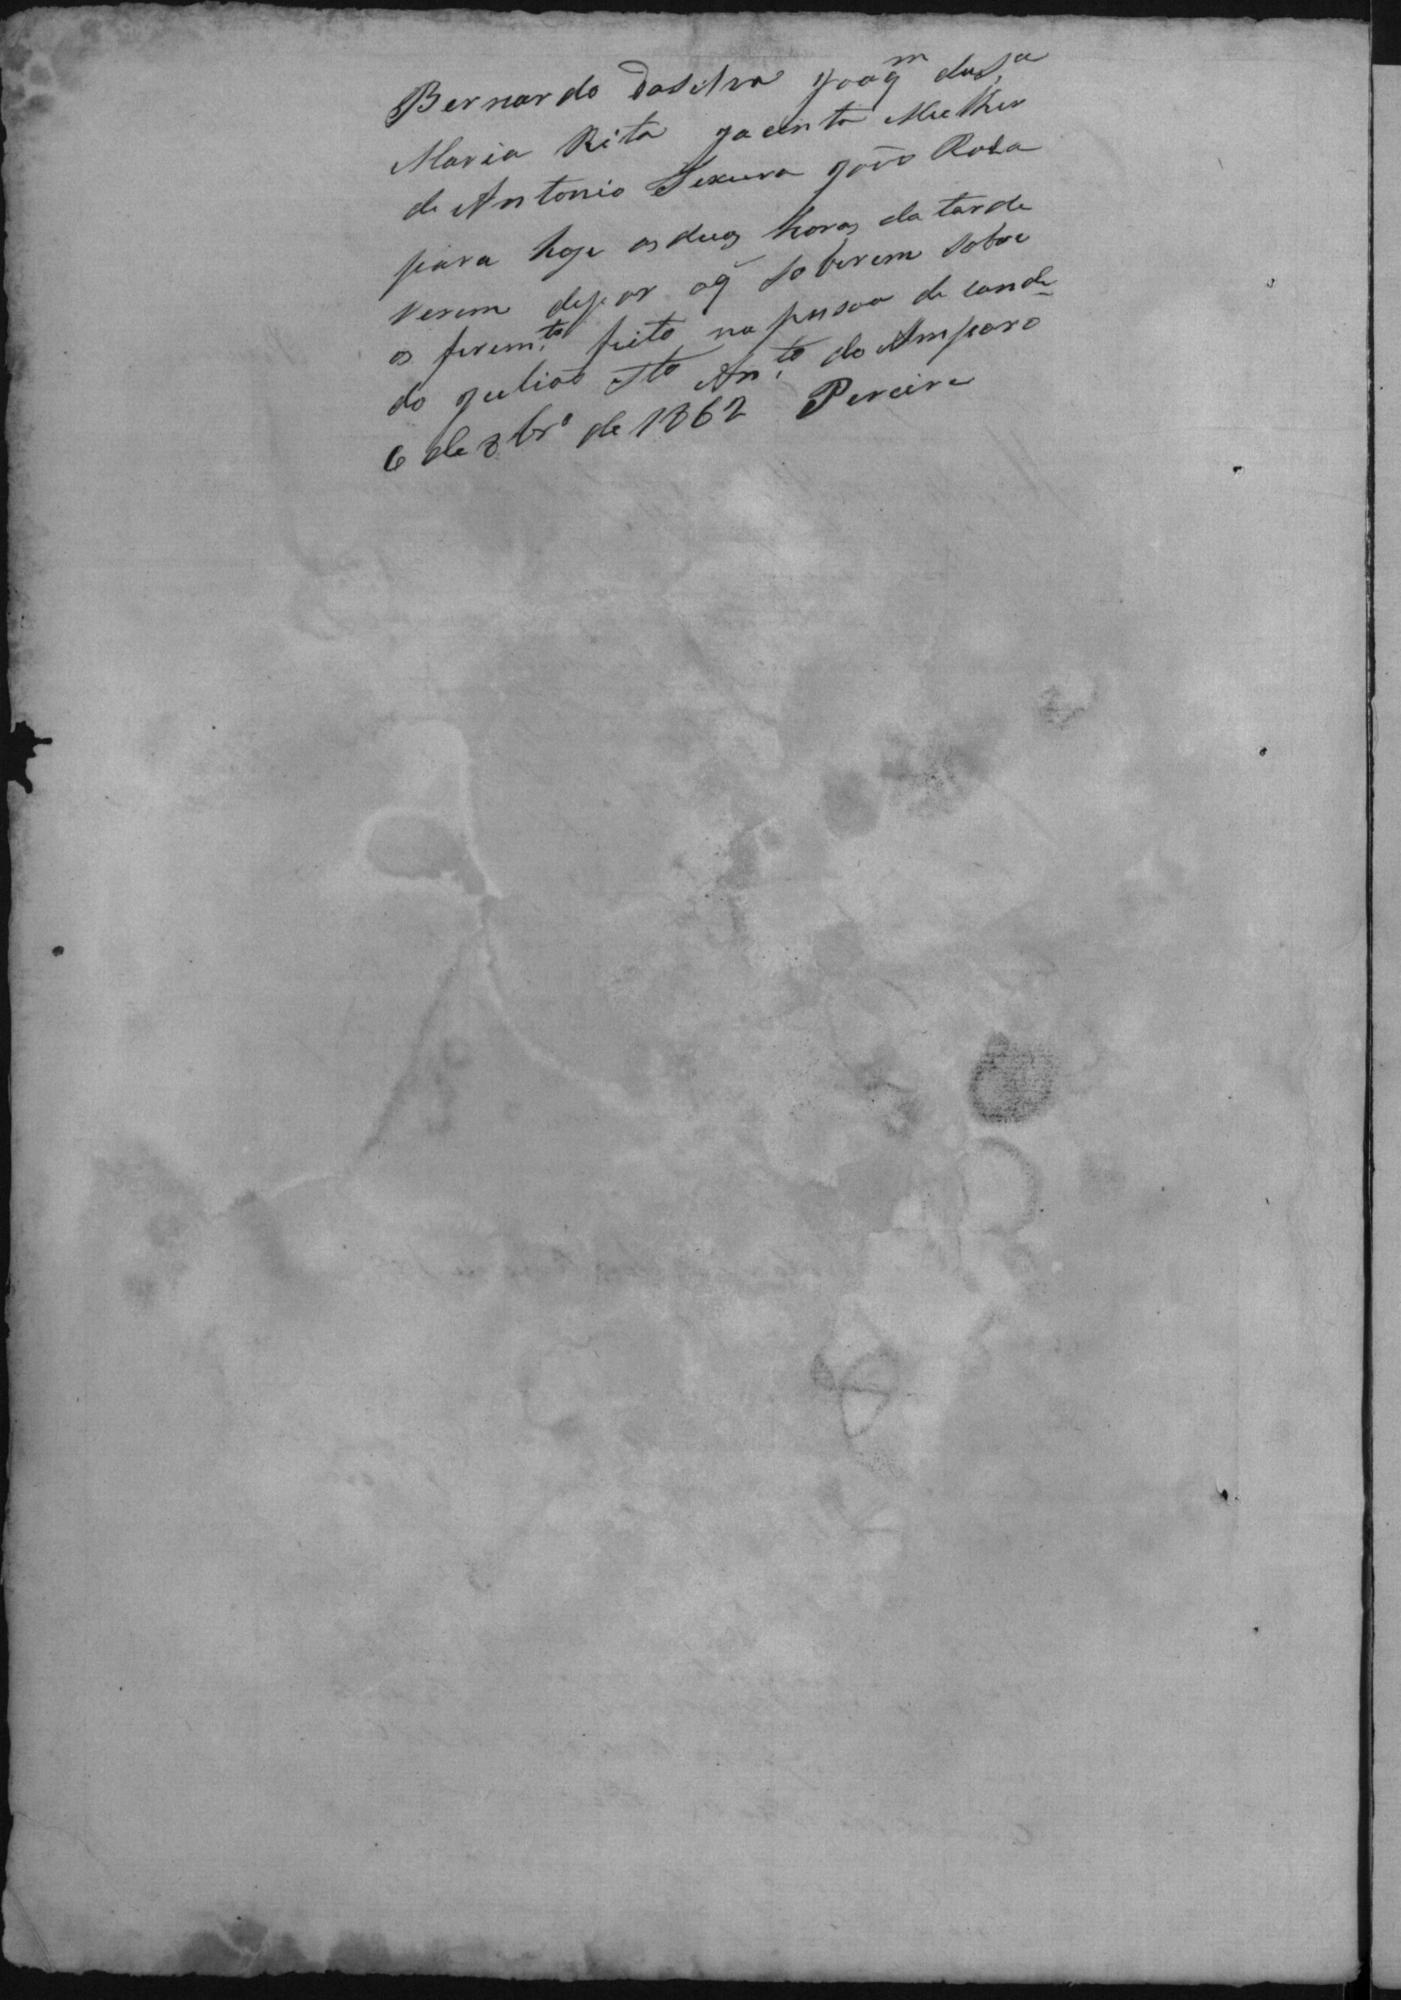 Bernardo Dasilva Joaqm da Sa
Maria Rita Jacinta Mulher
de Antonio Texeira João Rosa
para hoje as duas horas da tarde
verem depor oq̃ soberem sobre
os ferem.to feito na pesoa de Cande
do Julião Sto An.to do Amparo
6 de 8br.o de 1862 Pereira